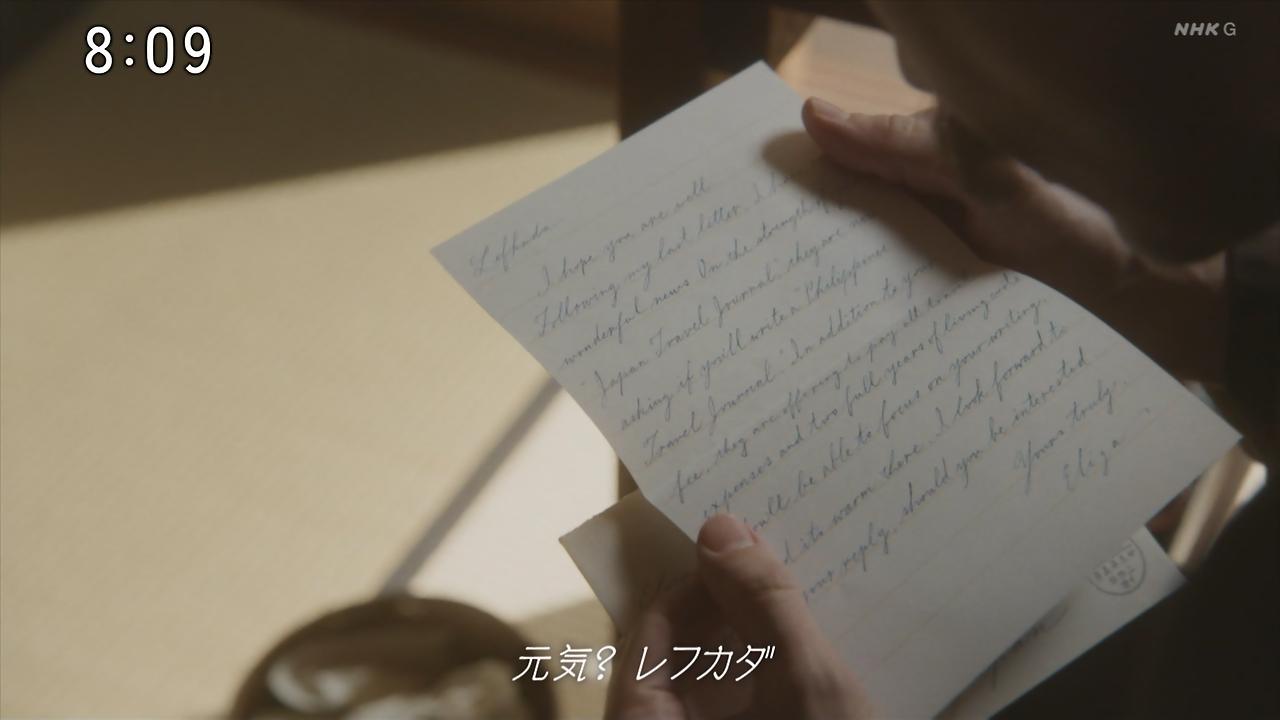 8:09
NHK G
Lefkada
I hope you are well
Following my last letter, I
wonderful news. On the strength
"Japan Travel Journal" they are
asking if you'll write a "Philippines
Travel Journal". In addition to your
fee, they are offering to pay all
expenses and two full years of living costs
be able to focus on your writing.
its warm there. I look forward to
your reply, should you be interested
Yours truly,
Eliza
元気? レフカダ